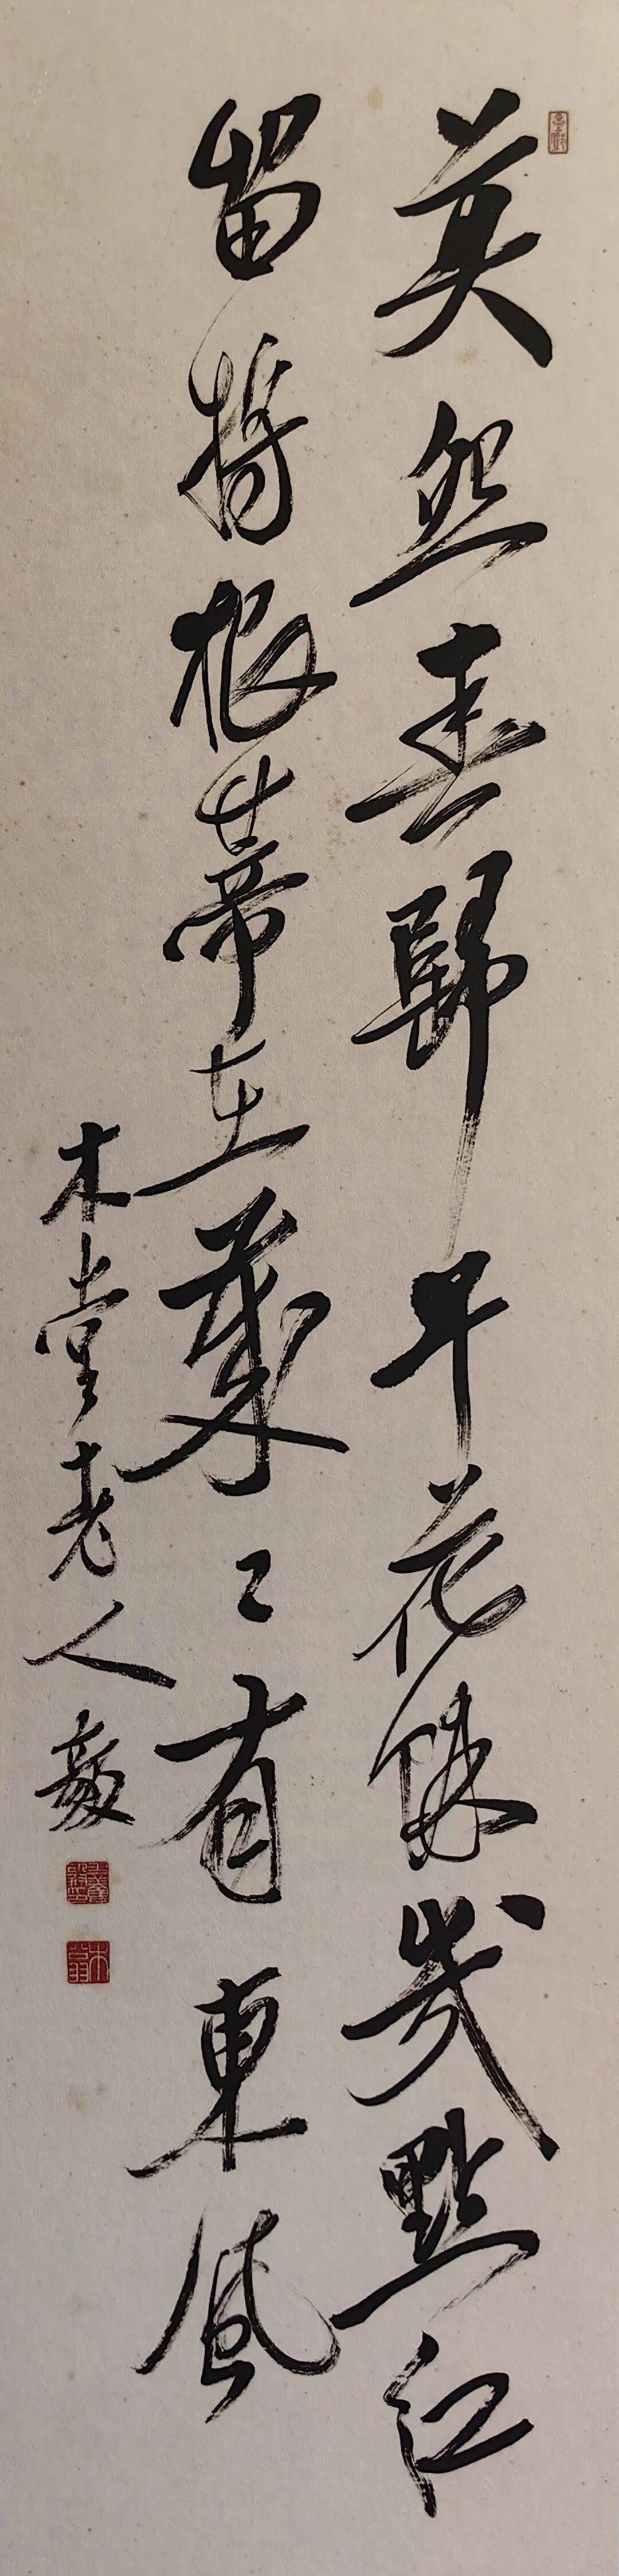 莫怨春歸早花餘幾點紅
留將根蒂在歲〻有東風
木堂老人毅